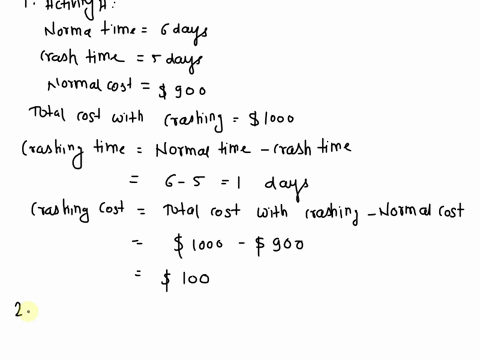 1. Activity A:
Norma time = 6 days
Crash time = 5 days
Normal cost = $900
Total cost with crashing = $1000
Crashing time = Normal time - crash time
= 6-5 = 1 days
Crashing cost = Total cost with crashing - Normal cost
= $1000 - $900
= $100
2.